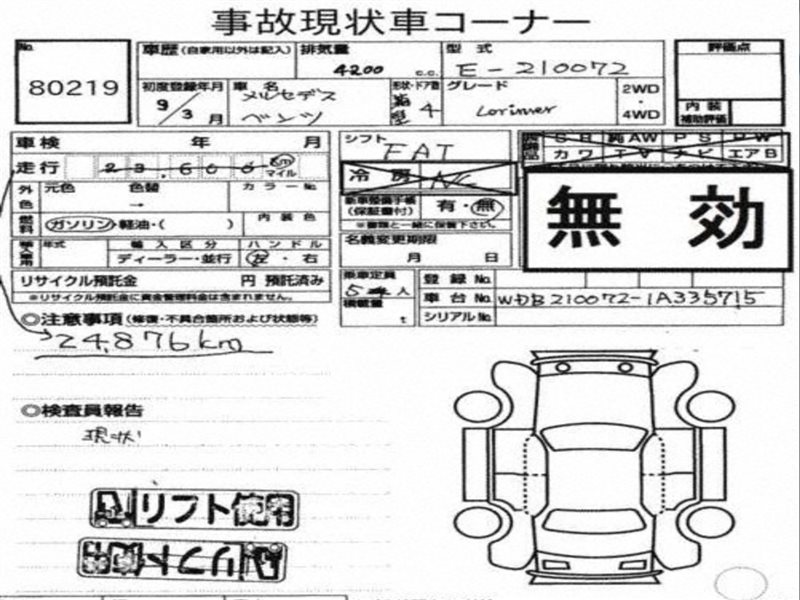 事故現状車コーナー
No.
80219
車歴 (自家用以外は記入)
排気量
4200 c.c.
型式
E-210072
評価点
初度登録年月
9/3月
車名
メルセデス
ベンツ
形状・ドア数
箱型 4
グレード
Lorimer
2WD
・
4WD
内装
補助評価
車検 年 月
走行 23,600 km マイル
外色
元色 色替 カラーNo.
→
燃料
ガソリン・軽油・( )
内装色
輸入車用
年式 輸入区分 ハンドル
ディーラー・並行 左・右
リサイクル預託金 円 預託済み
※リサイクル預託金に資金管理料金は含まれません。
シフト
FAT
冷房 AC
新車整備手帳
(保証書付) 有・無
※書類と一緒に保管下さい。
名義変更期限
月 日
乗車定員
5人
積載量
t
SR 純AW PS PW
カワ TV ナビ エアB
無効
登録No.
車台No. WDB210072-1A335715
シリアルNo.
◎注意事項 (修復・不具合箇所および状態等)
24,876km
◎検査員報告
現状
リフト使用
リフト使用